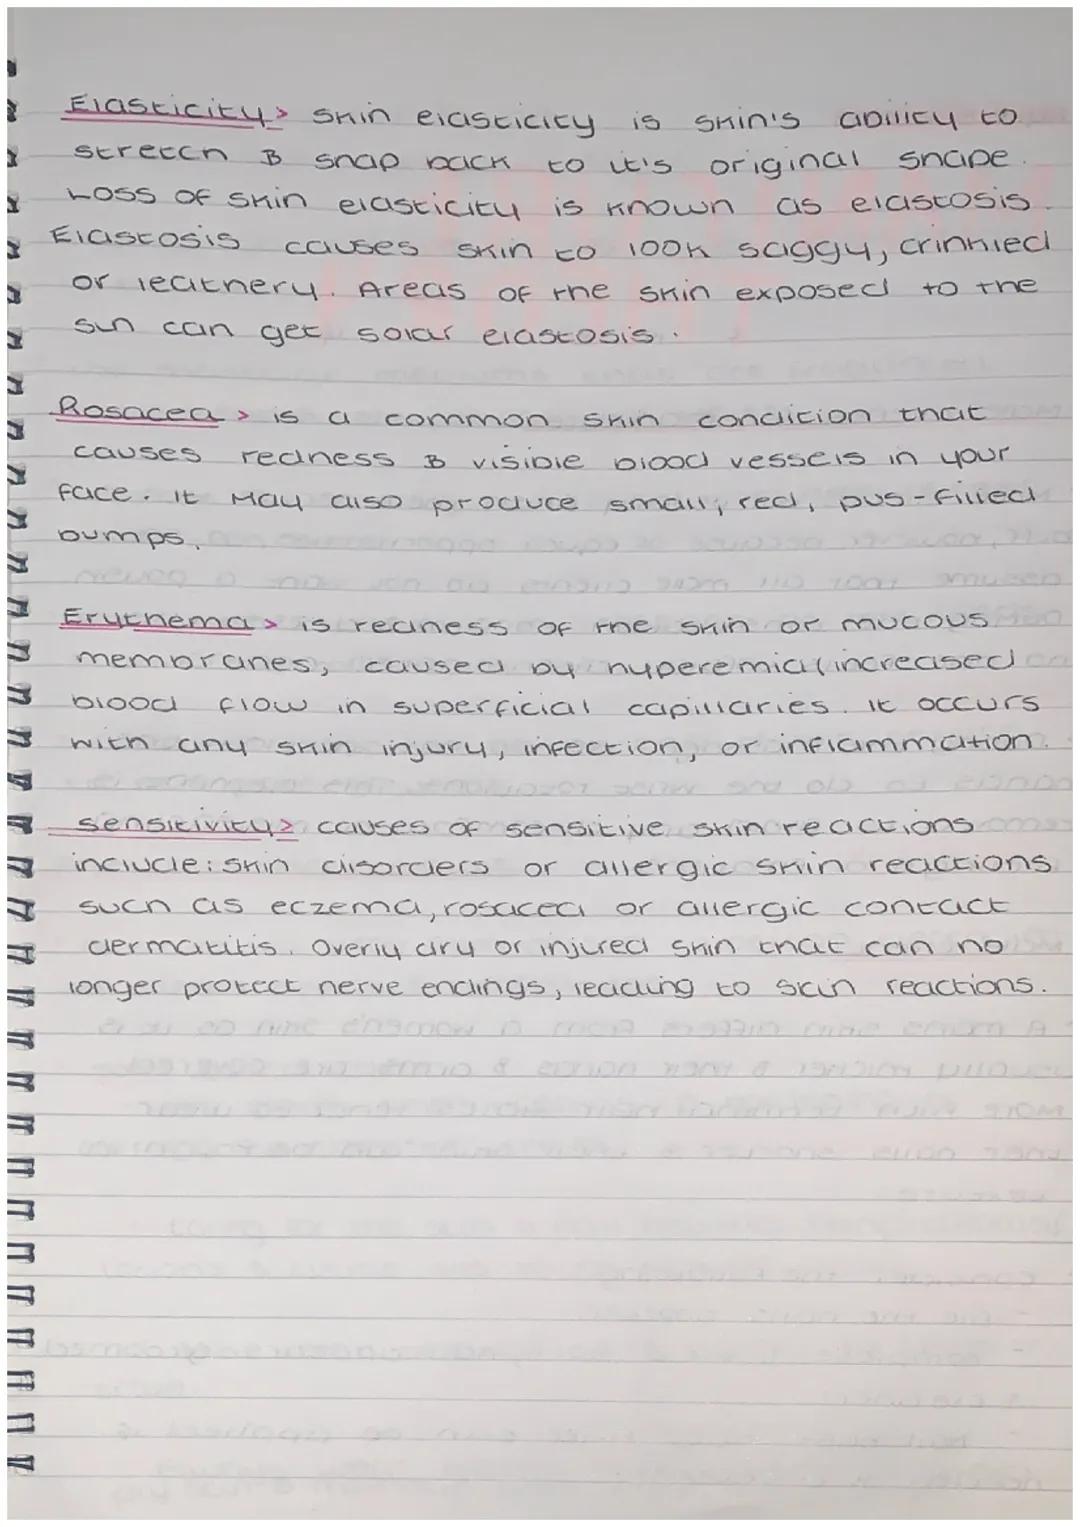 Elasticity > skin elasticity is skin's ability to
stretch & snap back to it's original shape.
Loss of skin elasticity is known as elastosis.
Elastosis causes skin to look saggy, crinkled
or leathery. Areas of the skin exposed to the
sun can get solar elastosis.
Rosacea > is a common skin condition that
causes redness & visible blood vessels in your
face. It may also produce small, red, pus-filled
bumps.
Erythema > is redness of the skin or mucous
membranes, caused by hyperemia (increased
blood flow in superficial capillaries. It occurs
with any skin injury, infection, or inflammation.
Sensitivity > causes of sensitive skin reactions
include: skin disorders or allergic skin reactions
such as eczema, rosacea or allergic contact
dermatitis. Overly dry or injured skin that can no
longer protect nerve endings, leading to skin reactions.